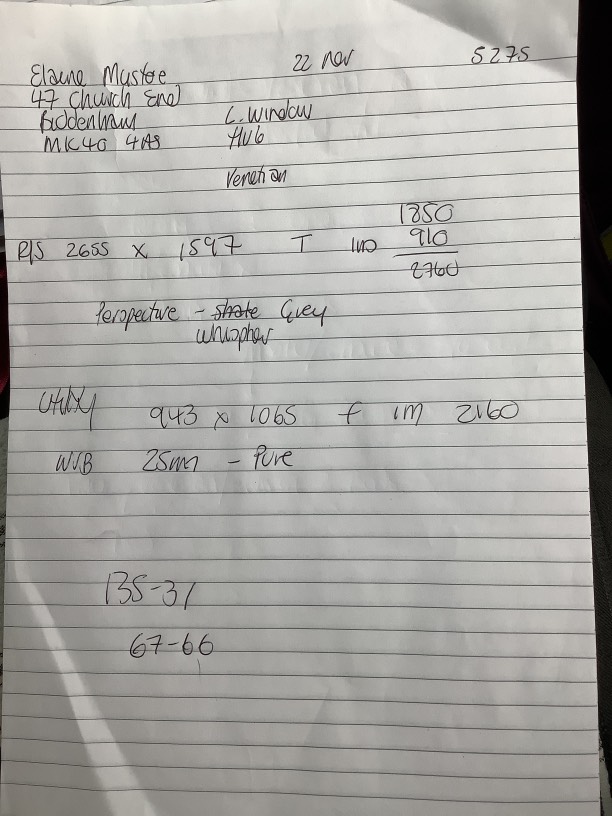 22 Nov 5275
Elaine Mustoe
47 Church End
Biddenham L. Window
MK40 4AS Hub
Venetian
1850
P/S 2655 x 1597 T 910
2760
Perspective - shate Grey
whisper
Utility 943 x 1065 f 1m 2160
WJB 25mm - Pure
135-31
67-66